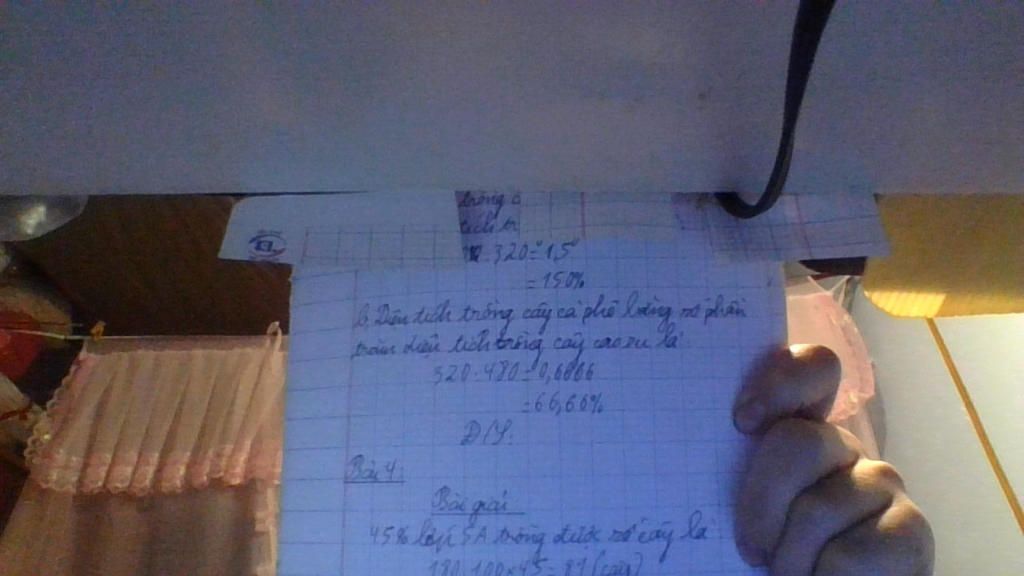 trồng c
tích tr
: 320 = 1,5
= 150%
b, Diện tích trồng cây cà phê bằng số phần
trăm diện tích trồng cây cao su là:
320 : 480 = 0,6666
= 66,66%
Đ/S:
Bài 4:
Bài giải
45% lớp 5A trồng được số cây là
180 : 100 x 45 = 81 (cây)